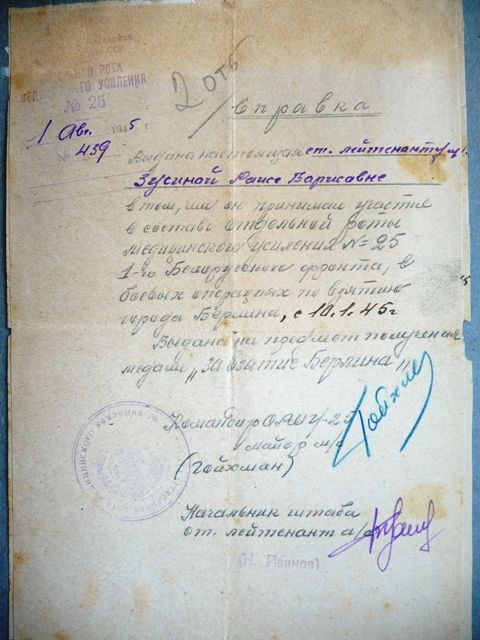 СССР
РОТА
МЕДИЦИНСКОГО УСИЛЕНИЯ
№ 25
1 Авг. 1945 г
№ 439
2 отб
Справка
Выдана настоящая ст. лейтенанту м/с
Зусиной Раисе Барисавне
в том, что он принимал участие
в составе отдельной роты
медицинского усиления №-25
1-го Белорусского фронта, в
боевых операциях по взятию
города Берлина, с 10.1.45г
Выдана на предмет получения
медали „За взятие Берлина"
Командир ОРМУ-25
майор м/с
(Гойхман)
Гойхман
Начальник штаба
ст. лейтенант а/с
(Н. Иванов)